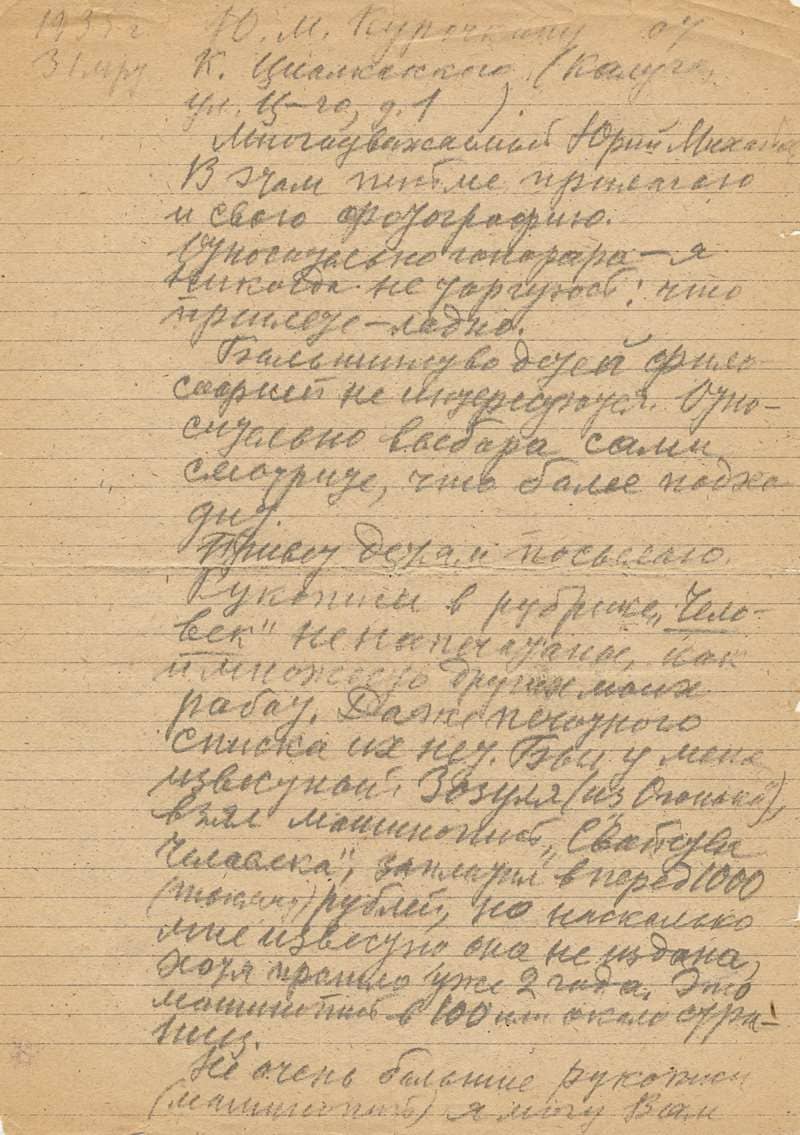 1935 г Ю. М. Курочкину от
31 мру К. Циолковского (Калуга,
ул. Ц-го, д. 1 ).
Многоуважаемый Юрий Михайлов
В этом письме прилагаю
и свою фотографию.
Относительно гонорара – я
никогда не торгуюсь: что
пришлете – ладно.
Большинство детей фило-
софией не интересуются. Отно-
сительно выбора сами
смотрите, что более подхо-
дит.
Привет детям посылаю.
Рукописи в рубрике „Чело-
век" не напечатаны, как
и множество других моих
работ. Даже печатного
списка их нет. Был у меня
известный Зозуля (из „Огонька"),
взял машинопись „Свойства
человека", заплатил вперед 1000
(тысячу) рублей, но насколько
мне известно она не издана,
хотя прошло уже 2 года. Это
машинопись в 100 или около стра-
ниц.
Не очень большие рукописи
(машинопись) я могу Вам